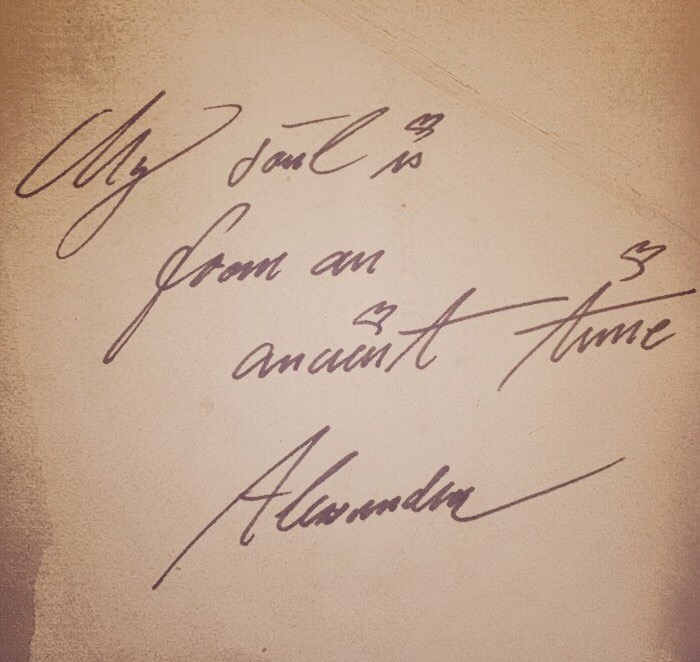 My soul is
from an
ancient time
Alexandra